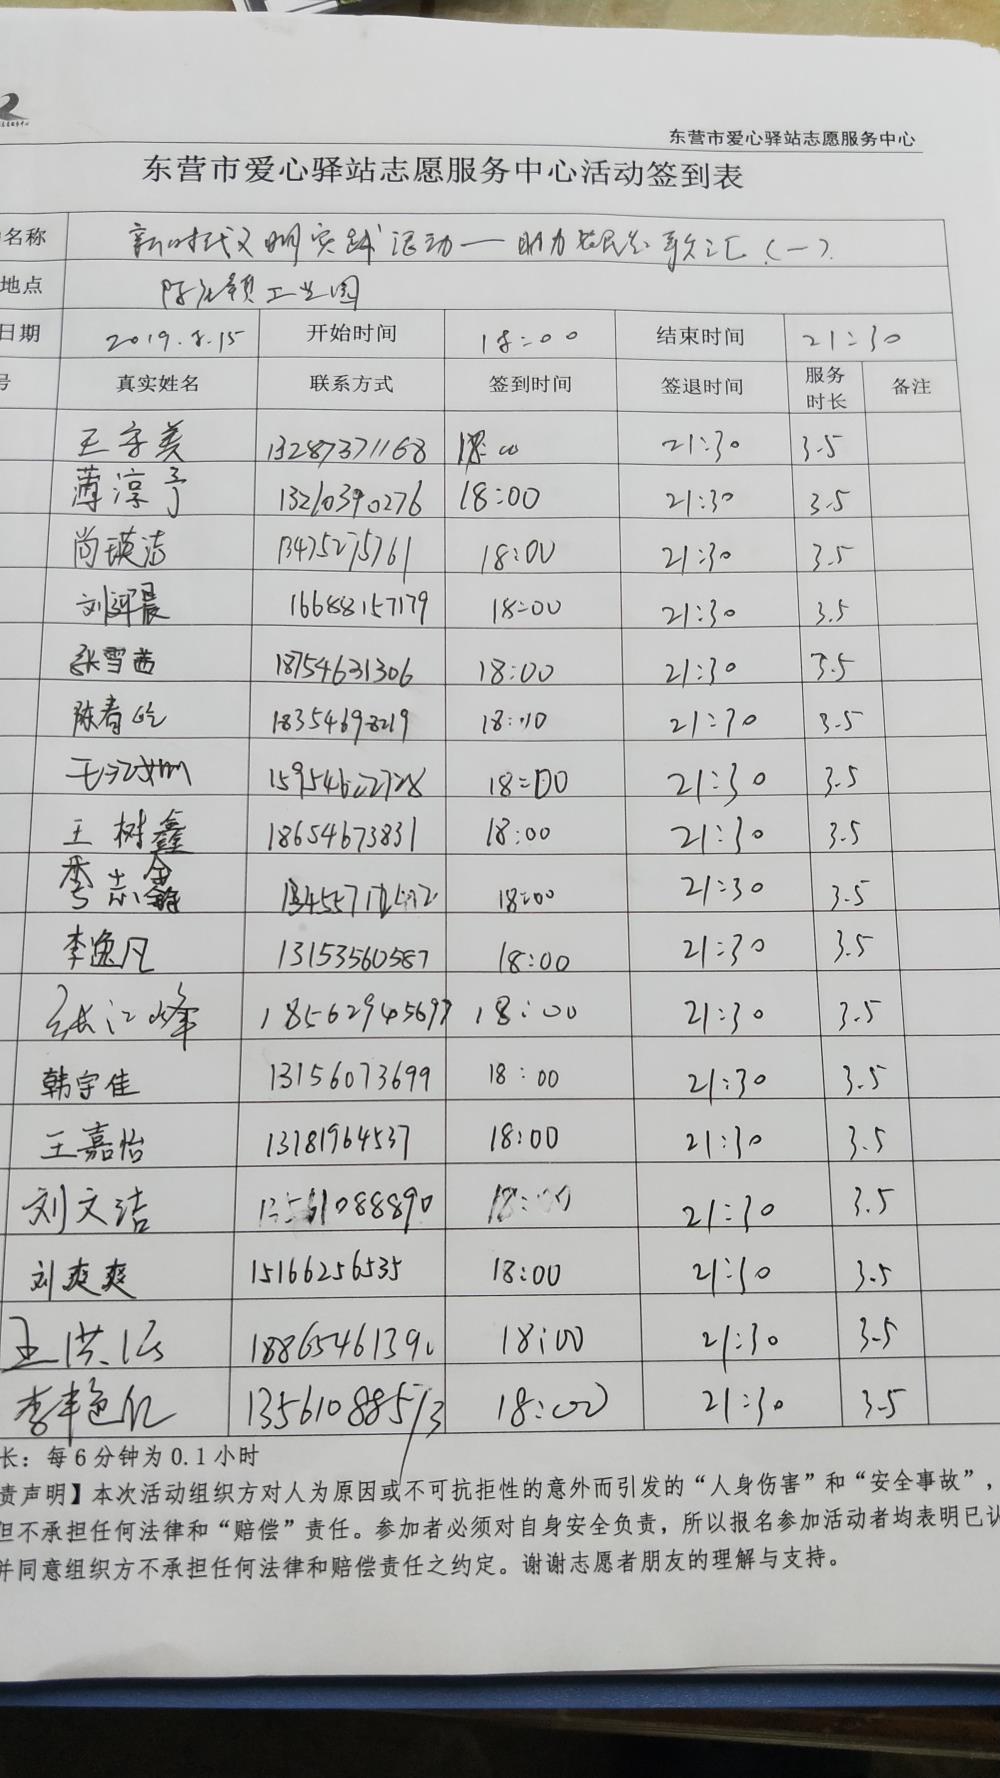 东营市爱心驿站志愿服务中心
东营市爱心驿站志愿服务中心活动签到表
名称 新时代文明实践活动—助力农民 歌汇(一)
地点 陈 工业园
日期 2019.8.15 开始时间 18:00 结束时间 21:30
号 真实姓名 联系方式 签到时间 签退时间 服务时长 备注
王字美 13287371168 18:00 21:30 3.5
薄淳予 13210390276 18:00 21:30 3.5
尚瑛洁 13475275761 18:00 21:30 3.5
刘 晨 16688157179 18:00 21:30 3.5
张雪茜 18754631306 18:00 21:30 3.5
陈春 18354698219 18:00 21:30 3.5
18:00 21:30 3.5
王树鑫 18654673831 18:00 21:30 3.5
李志鑫 18:00 21:30 3.5
李逸凡 13153560587 18:00 21:30 3.5
张江峰 18562945697 18:00 21:30 3.5
韩宇佳 13156073699 18:00 21:30 3.5
王嘉怡 13781964537 18:00 21:30 3.5
刘文洁 13561088890 18:00 21:30 3.5
刘爽爽 15166256535 18:00 21:30 3.5
王洪 18:00 21:30 3.5
李艳 13561088573 18:00 21:30 3.5
长：每6分钟为0.1小时
责声明】本次活动组织方对人为原因或不可抗拒性的意外而引发的“人身伤害”和“安全事故”，
但不承担任何法律和“赔偿”责任。参加者必须对自身安全负责，所以报名参加活动者均表明已认
并同意组织方不承担任何法律和赔偿责任之约定。谢谢志愿者朋友的理解与支持。